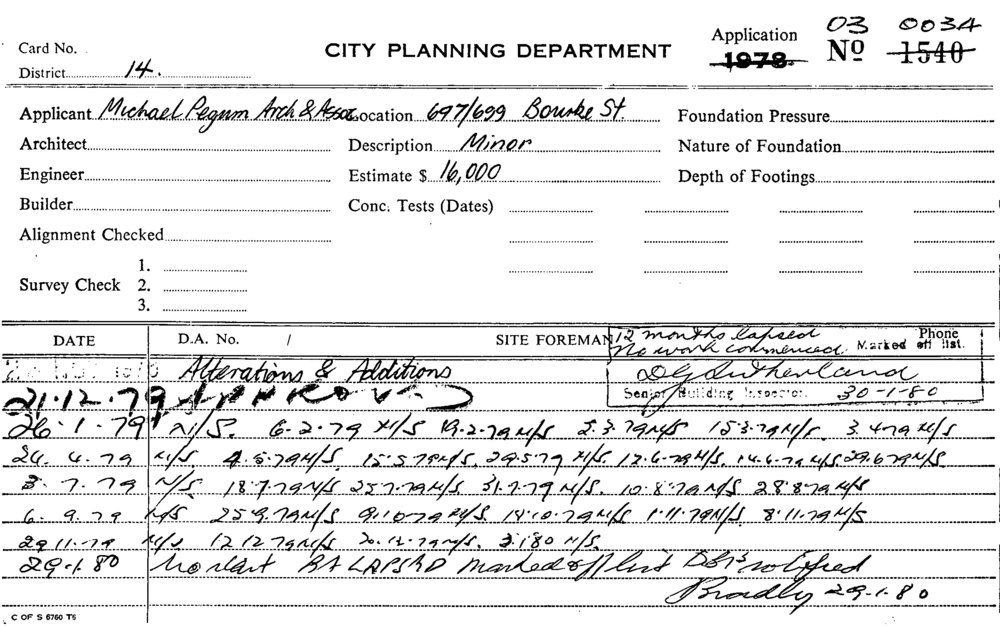 Card No.
CITY PLANNING DEPARTMENT
Application 1978 Nº 1540 03 0034
District 14.
Applicant Michael Pegum Arch & Assoc Location 697/699 Bourke St. Foundation Pressure
Architect Description Minor Nature of Foundation
Engineer Estimate $ 16,000 Depth of Footings
Builder Conc. Tests (Dates)
Alignment Checked
Survey Check 1.
2.
3.
DATE D.A. No. / SITE FOREMAN Phone
12 months lapsed
No work commenced. Marked off list.
DG Sutherland
Senior Building Inspector. 30-1-80
Alterations & Additions
21.12.79 APPROVED
26.1.79 N/S. 6.2.79 N/S 19.2.79 N/S 2.3.79 N/S 15.3.79 N/S. 3.4.79 N/S
24.4.79 N/S 4.5.79 N/S. 15.5.79 N/S. 29.5.79 N/S. 12.6.79 N/S. 14.6.79 N/S 29.6.79 N/S.
3.7.79 N/S 18.7.79 N/S 25.7.79 N/S. 31.7.79 N/S. 10.8.79 N/S 28.8.79 N/S
6.9.79 N/S 25.9.79 N/S 9.10.79 N/S. 19.10.79 N/S 1.11.79 N/S 8.11.79 N/S
29.11.79 N/S 12.12.79 N/S. 20.12.79 N/S. 3.1.80 N/S.
29.1.80 No start BA LAPSED Marked off list notified
Bradly 29.1.80
C OF S 6760 T6